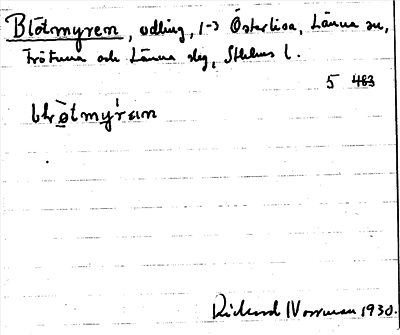 Blötmyren, odling, 1-3 Österlisa, Länna sn,
Frötuna och Länna slg, Sthlms l.
5 483
Rickard Norrman 1930.